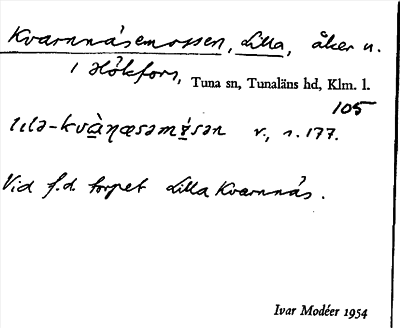 Kvarnnäsemossen, Lilla, åker n.
i Hökfors, Tuna sn, Tunaläns hd, Klm. l.
105
lɩlə-kvà̱ɳæsəmɤ́sən v, s. 177.
Vid f.d. torpet Lilla Kvarnnäs.
Ivar Modéer 1954